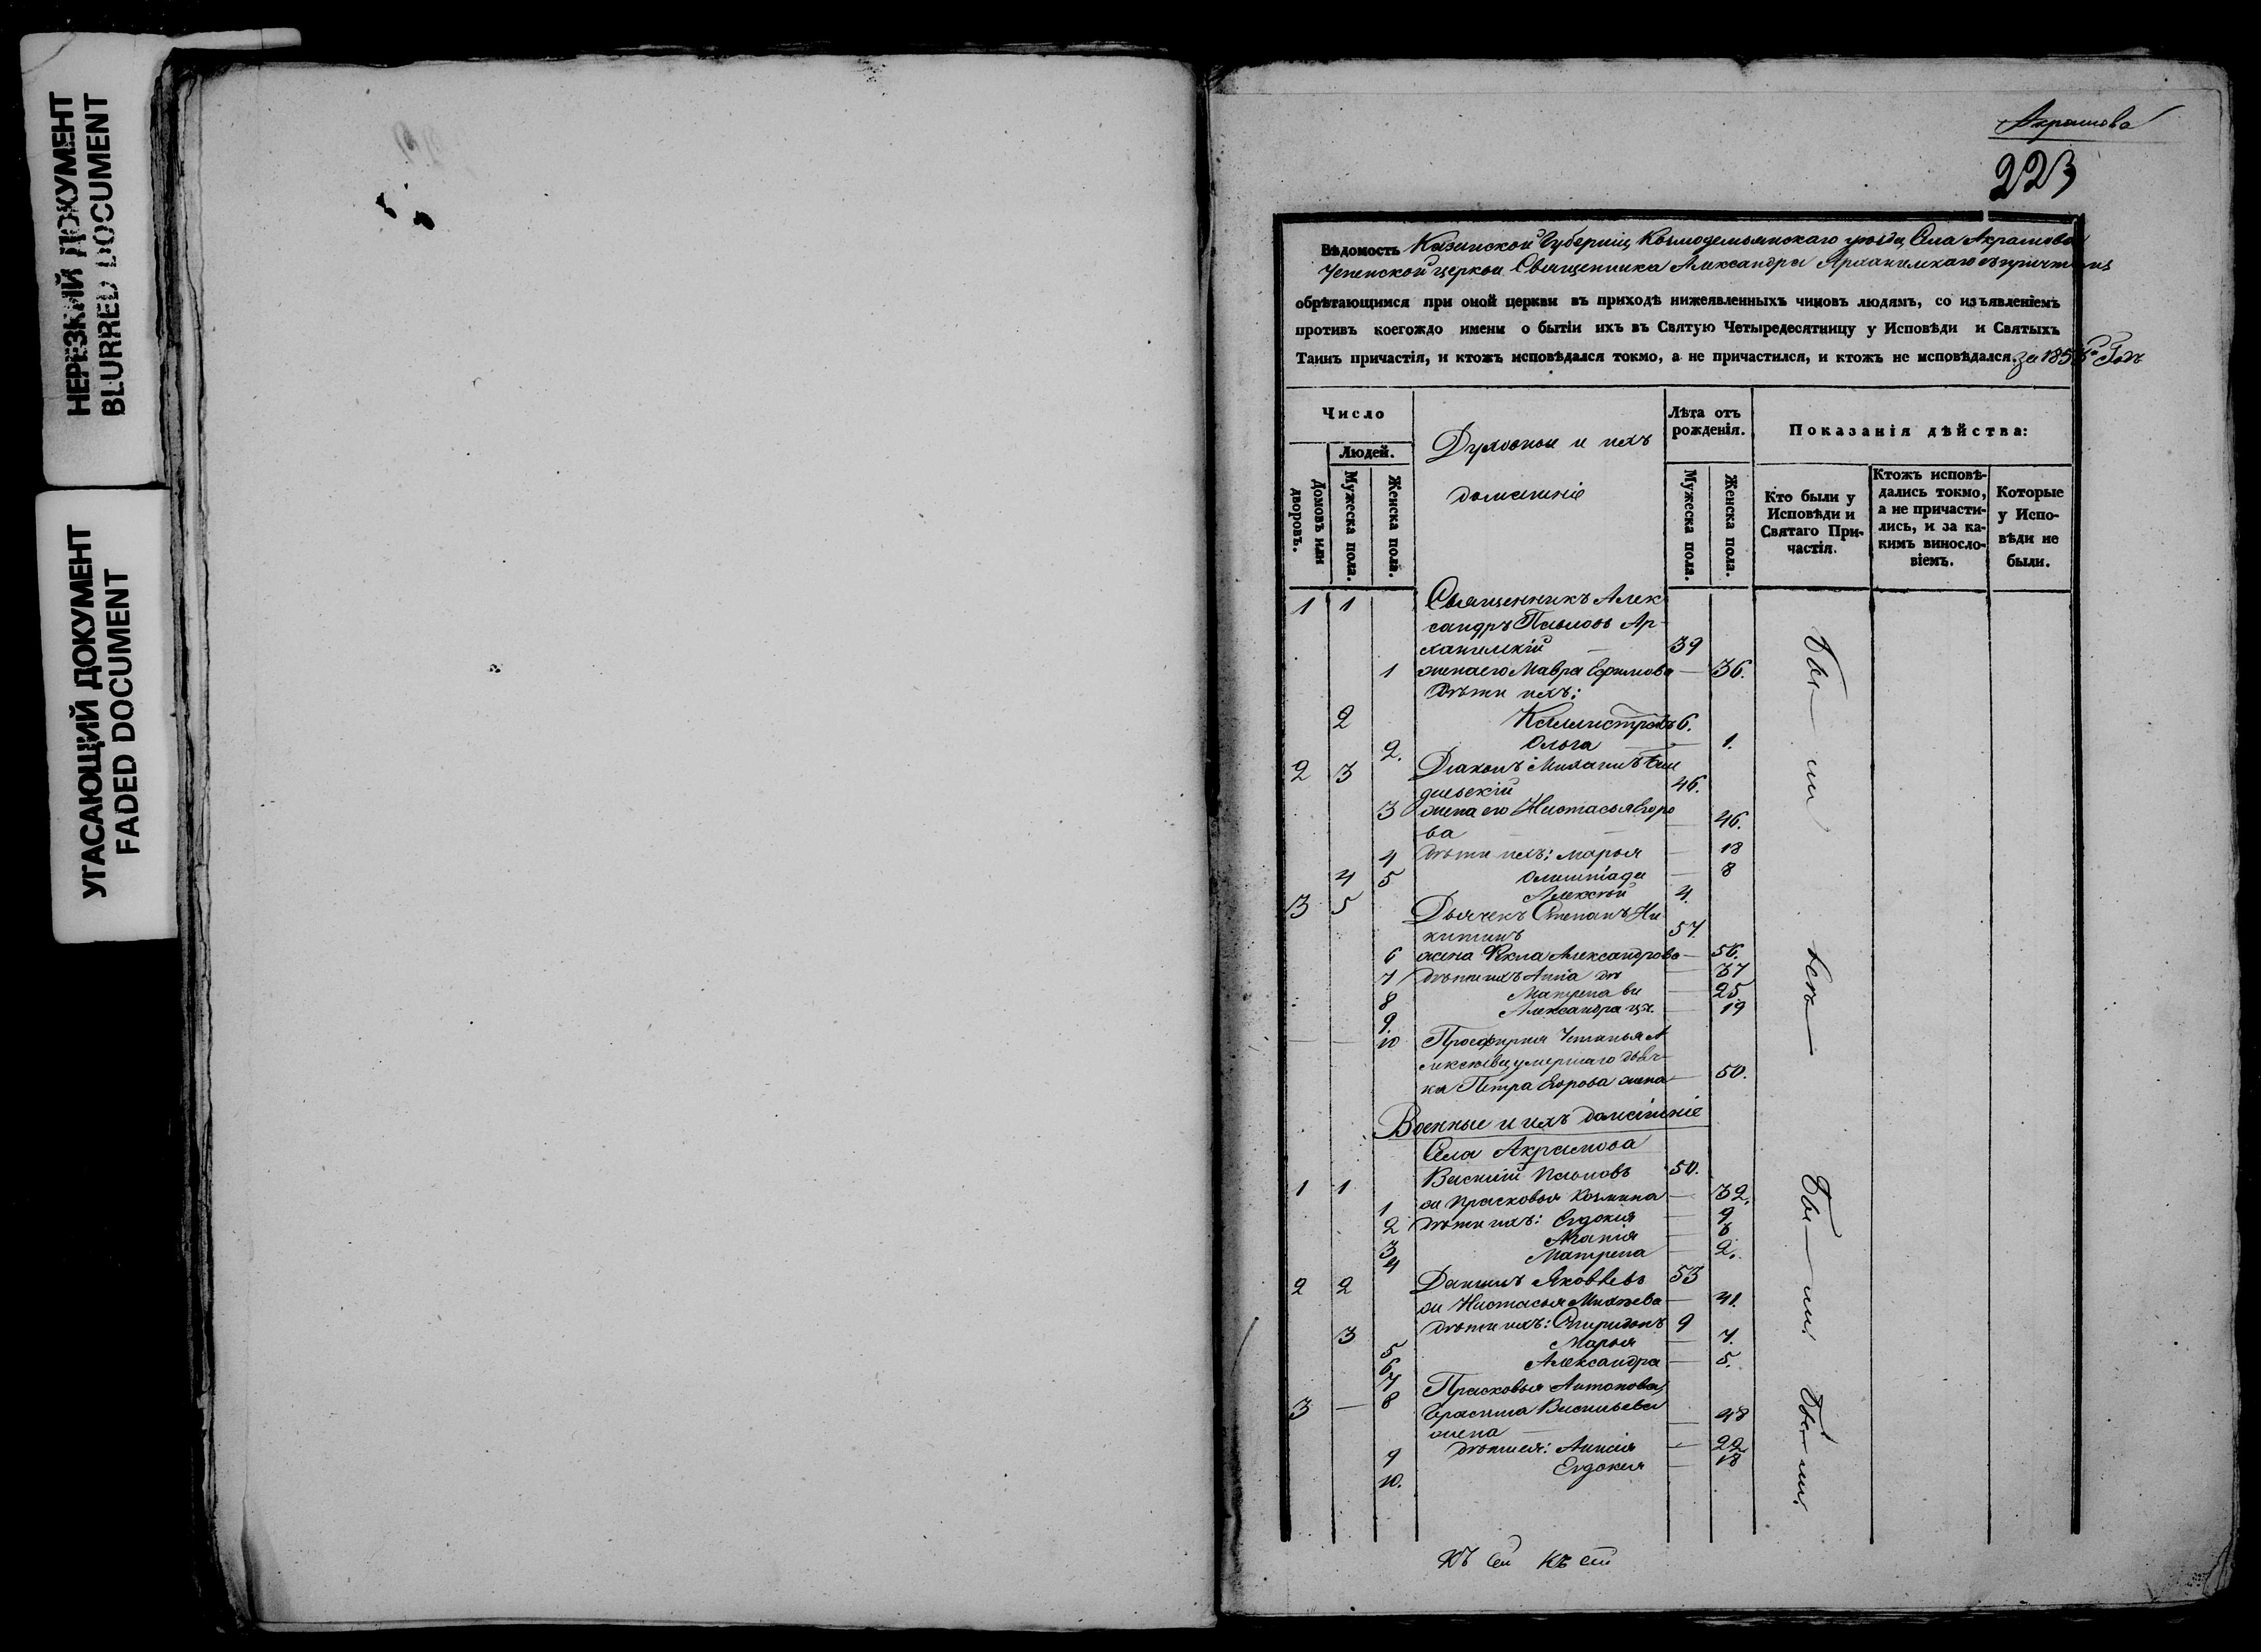 НЕРЕЗКИЙ ДОКУМЕНТ
BLURRED DOCUMENT
УГАСАЮЩИЙ ДОКУМЕНТ
FADED DOCUMENT
Акрамова
223
Вѣдомость Казанской Губерніи Козмодемьянскаго уѣзда Села Акрамова
Успенской церкви Священника Александра Архангельскаго съ причтомъ
обрѣтающимся при оной церкви въ приходѣ нижеявленныхъ чиновъ людямъ, со изъявленіемъ
противъ коегождо имени о бытіи ихъ въ Святую Четыредесятницу у Исповѣди и Святыхъ
Таинъ причастія, и ктожъ исповѣдался токмо, а не причастился, и ктожъ не исповѣдался. за Годъ
Число
Людей.
Домовъ или дворовъ.
Мужеска пола.
Женска пола.
Духовныя и ихъ
домашніе
Лѣта отъ
рожденія.
Мужеска пола.
Женска пола.
Показанія дѣйства:
Кто были у
Исповѣди и
Святаго При-
частія.
Ктожъ исповѣ-
дались токмо,
а не причасти-
лись, и за ка-
кимъ винносло-
віемъ.
Которые
у Испо-
вѣди не
были.
1 1 Священникъ Алек
сандръ Павловъ Ар-
хангелскій 39
1 жена его Мавра Ефимова 36.
Дѣти ихъ:
2 Каллистратъ 6.
2. Ольга 1.
2 3 Діаконъ Михаилъ
46.
3 жена его Настасья Егоро
ва 46.
4 дѣти ихъ: Марья 18
4 5 Олимпіада 8
Алексѣй 4.
3 5 Дьячекъ Степанъ Ни
китинъ 57.
6 жена Ѳекла Александрова 56.
7 дѣти ихъ Анна 37
8 Матрена 25
9. Александра 19
10 Просфирня Устинья А
лексѣева умершаго дьяч-
ка Петра Егорова жена 50.
Военные и ихъ домашніе
Села Акрамова
1 1 Василій Павловъ 50.
1 ж Прасковья Козмина 32.
2 дѣти ихъ: Евдокія 9
3 Агапія 6
4 Матрена 2.
2 2 Данилъ Яковлевъ 53
ж Настасья Михѣева 41.
3 дѣти ихъ: Спиридонъ 9
5 Марья 7.
6 Александра 5.
7
3 — 8 Прасковья Антонова,
Герасима Васильева
жена 48
9 дѣти ея: Анисія 22
10. Евдокія 18
Бы — ли
всѣ
Бы — ли.
Бы — ли.